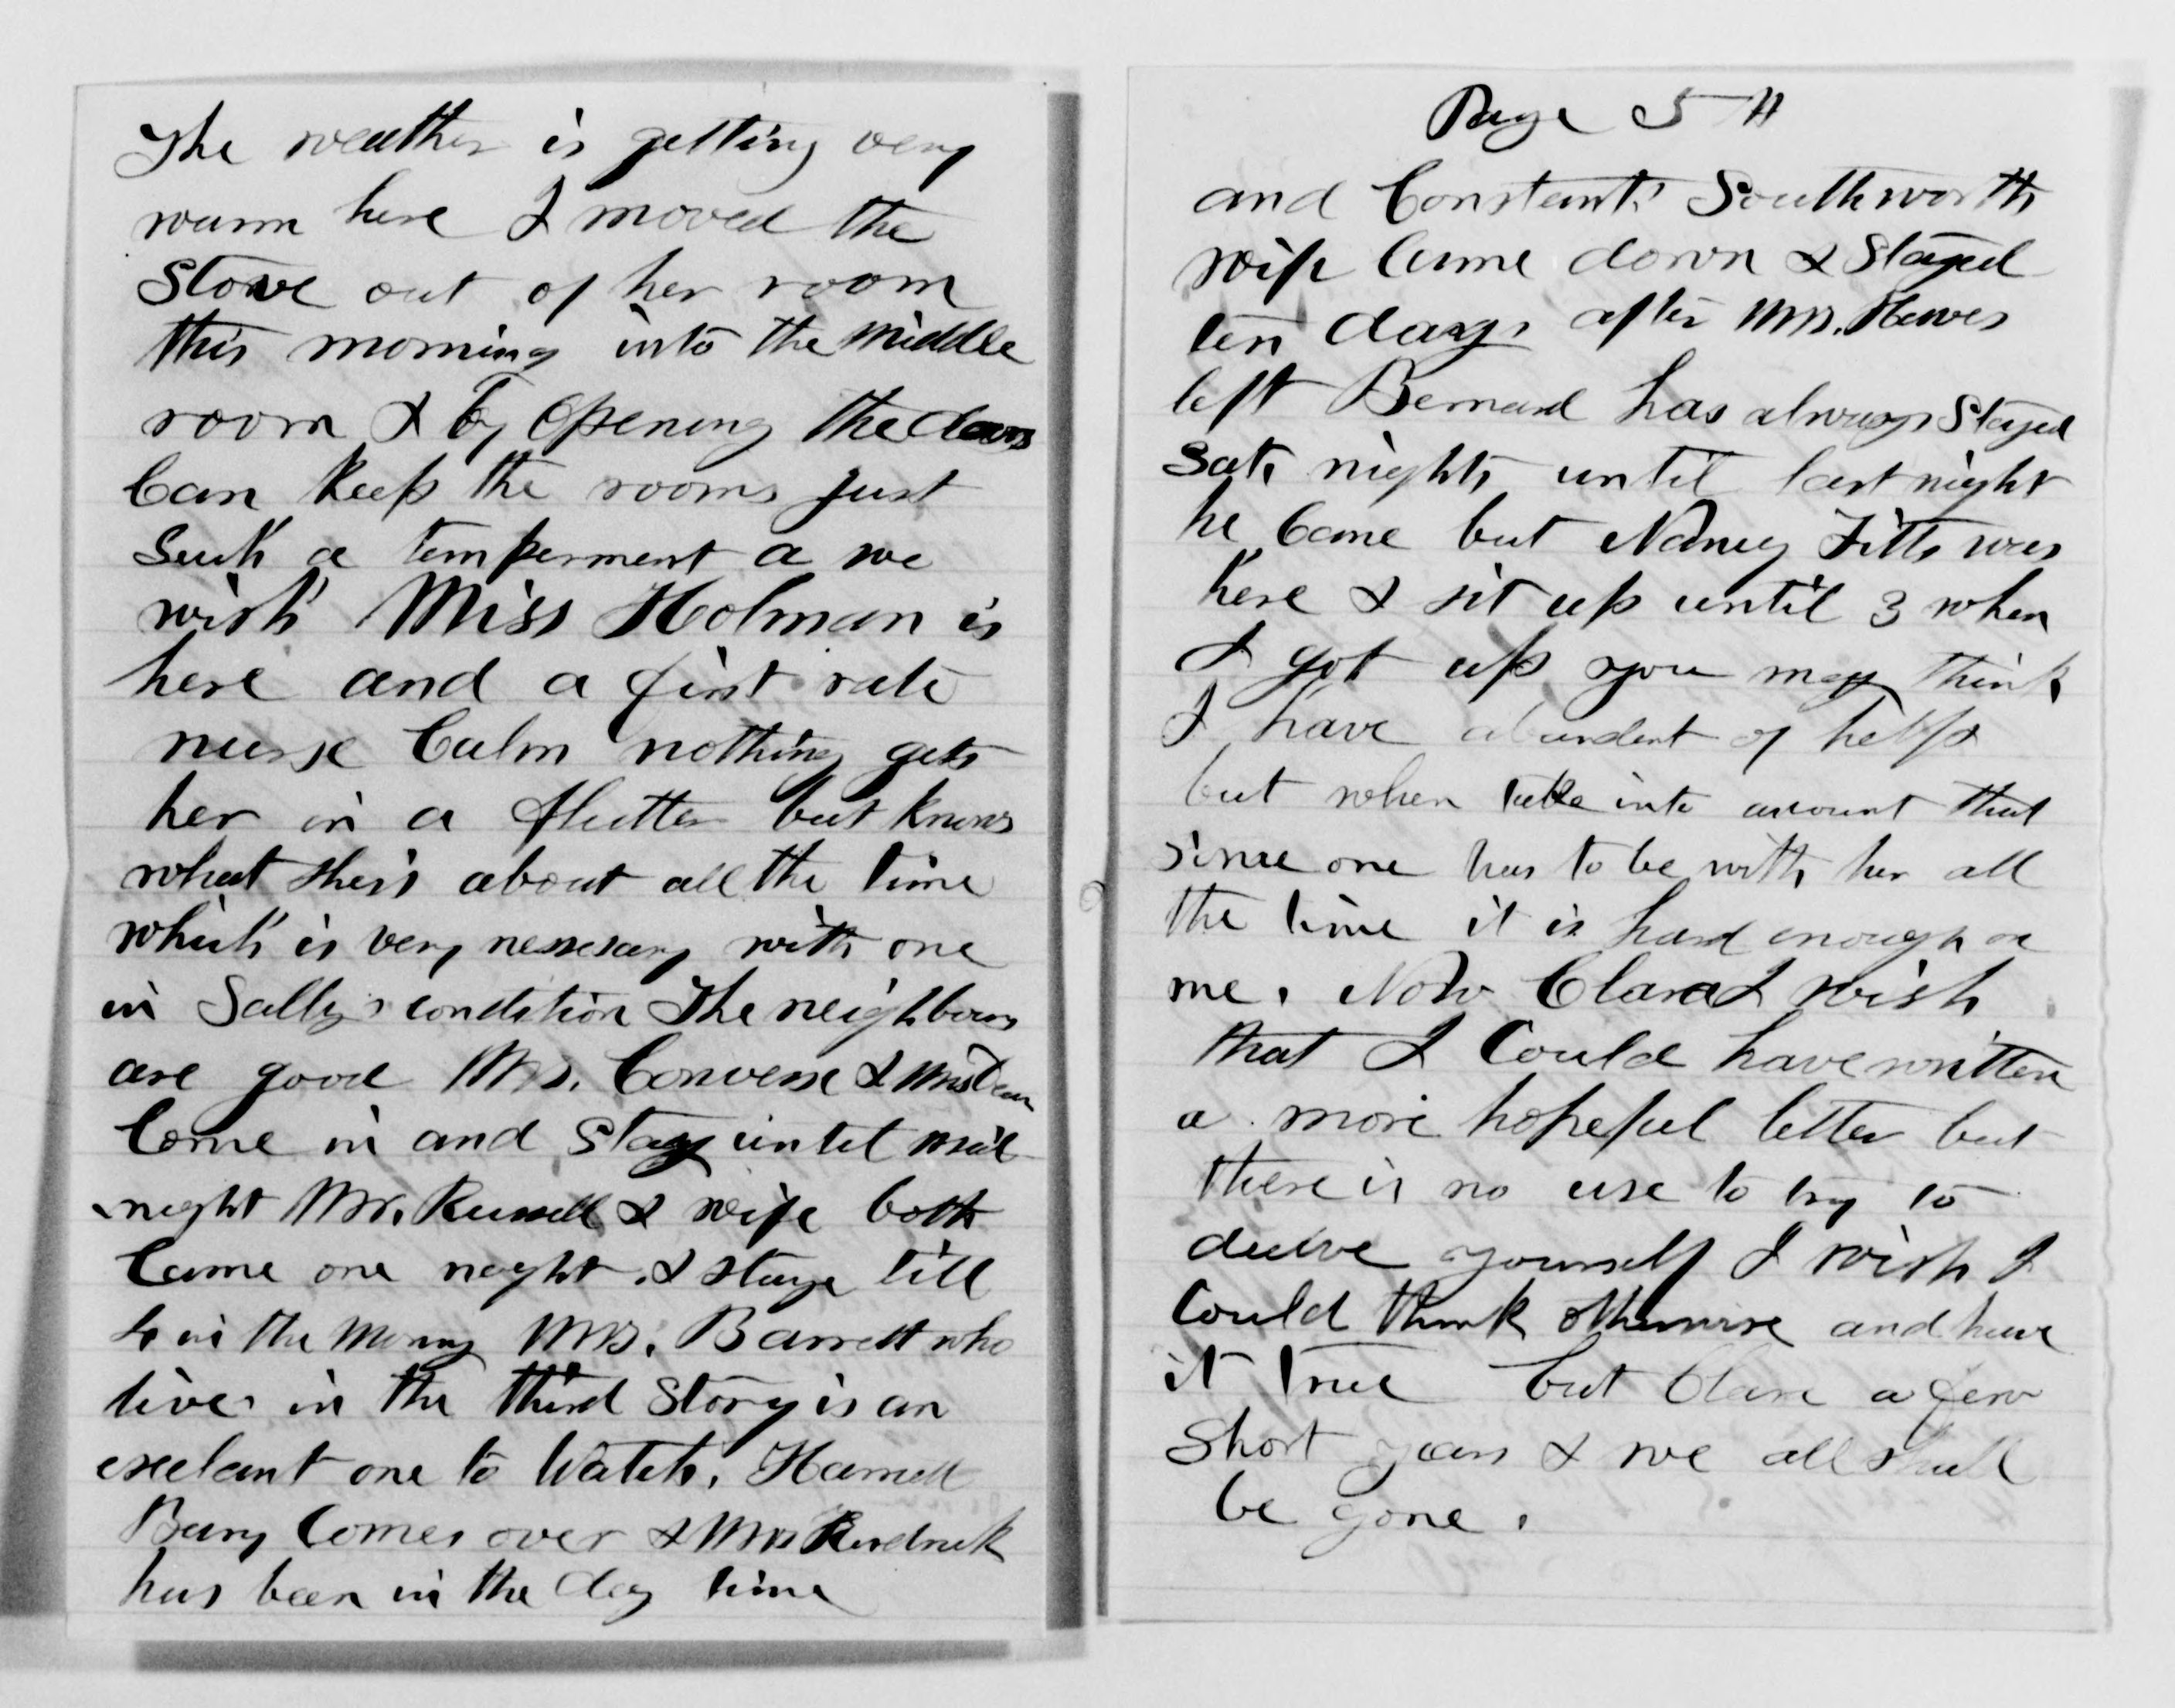 The weather is getting very
warm here I moved the
Stove out of her room
this morning into the middle
room & by opening the doors
Can keep the rooms just
Such a temperment a we
wish Miss Holman is
here and a first rate
nurse Calm nothing gets
her in a flutter but knows
what she's about all the time
which is very nessesary with one
in Sally's condition The neighbours
are good Mrs. Converse & Mrs
Come in and Stay until mid
night Mr. Russell & wife both
Came one night & staye till
4 in the morning Mrs. Barrett who
lives in the third Story is an
exelant one to Watch.
Bury Comes over & Mrs
has been in the day time
Page 5th
and Constant Southworth
wife Came down & Stayed
ten days after Mrs. Hewes
left Bernard has always Stayed
Sat. nights until last night
he Came but Nancy Fitts was
here & sit up until 3 when
I got up you may think
I have abundent of help
but when take into account that
some one has to be with her all
the time it is hard enough on
me. Now Clara I wish
that I Could have written
a more hopeful letter but
there is no use to try to
deceive yourself I wish I
Could think otherwise and have
it true but Clara a few
Short years & we all shall
be gone.